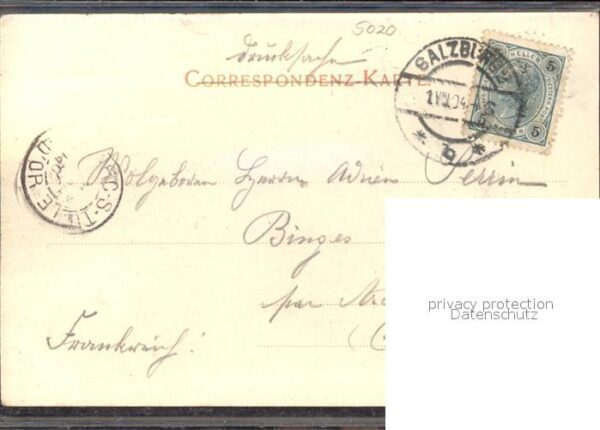 5020
Drucksache
CORRESPONDENZ-KARTE
SALZBURG
1.VII.04
* b *
5 HELLER 5
5 5
ARC-S-TILLE
D'OR
Wolgeboren Herrn Adrien Perrin
Binges
par Arc
(C
Frankreich:
privacy protection
Datenschutz